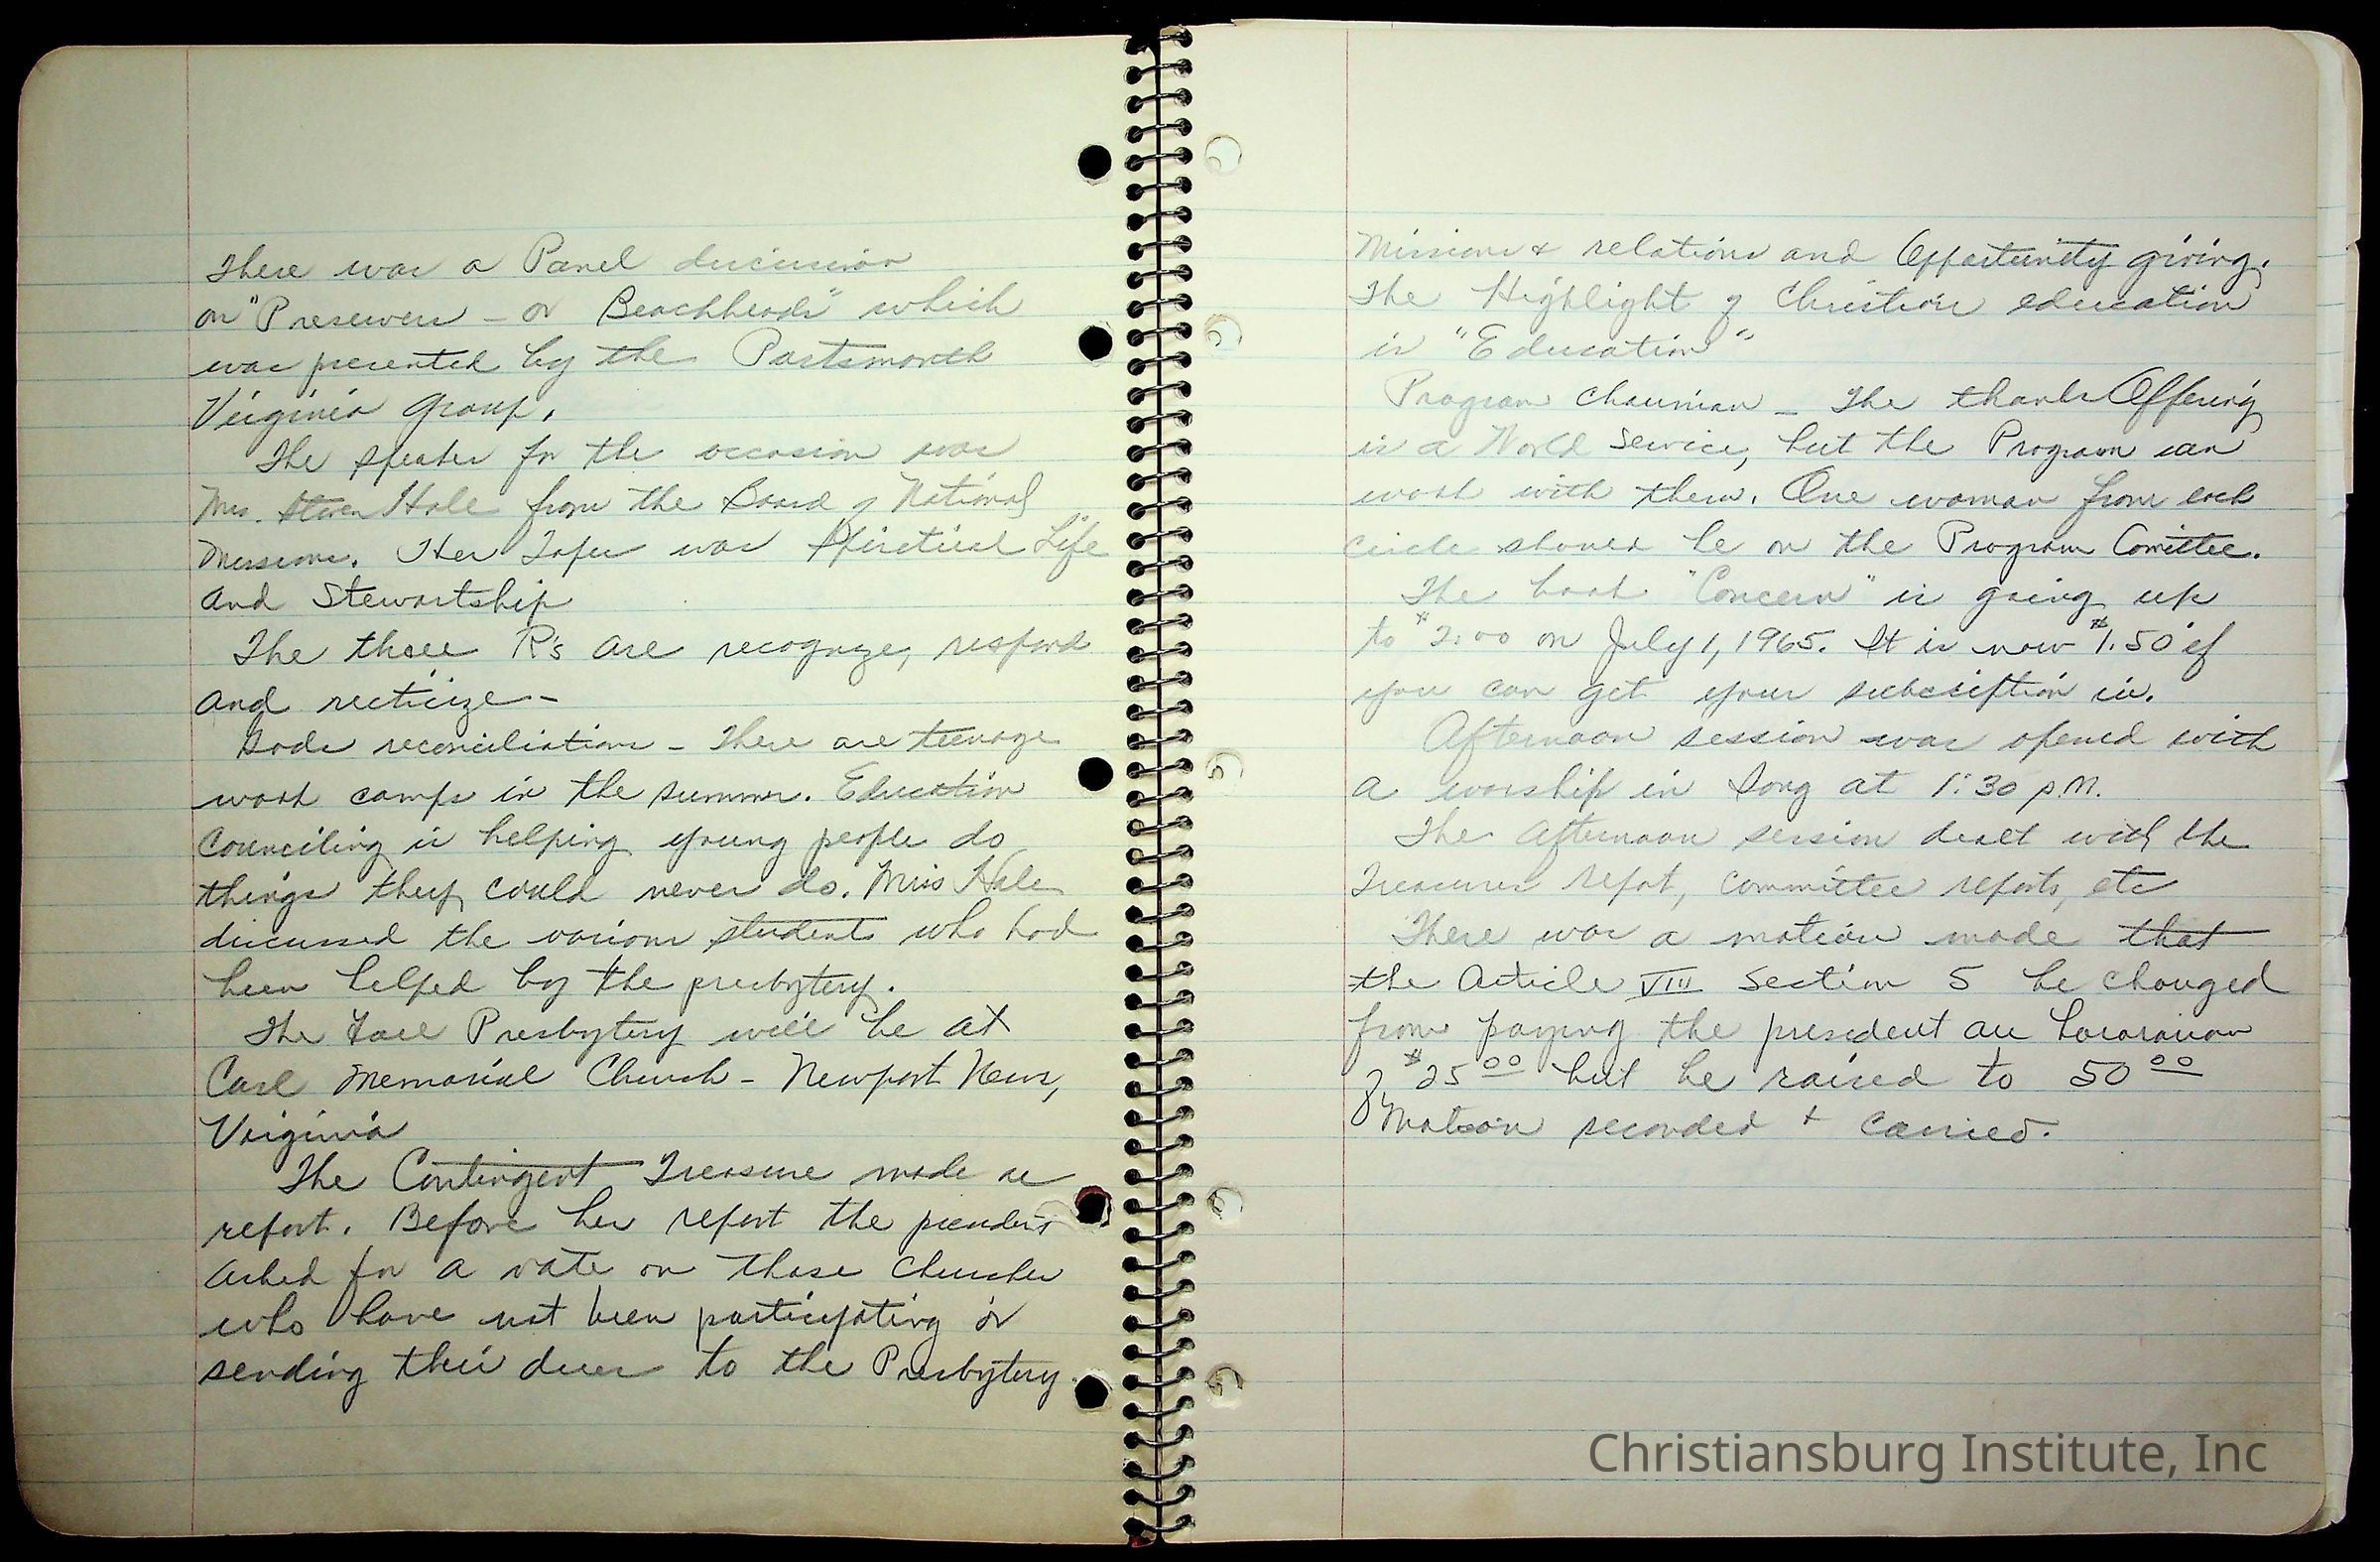 There was a Panel discussion
on "Preservers - or Beachheads" which
was presented by the Portsmouth
Virginia Group.
The speaker for the occasion was
Mrs. Hale from the Board of National
Missions. Her Topic was Spiritual Life
and Stewartship
The three R's are recognize, respond
and
Gods reconciliation - There are teenage
work camps in the summer. Education
Counciling is helping young people do
things they could never do. Miss Hale
discussed the various students who had
been helped by the presbytery.
The Fall Presbytery will be at
Carl Memorial Church - Newport News,
Virginia
The Contingent Treasure made a
report. Before her report the
asked for a vote on those churches
who have not been participating or
sending their dues to the Presbytery.
Missions & relations and Opportunity giving.
The Highlight of Christian education
is "Education"
Program Chairman - The thank Offering
is a World Service, but the Program can
work with them. One woman from each
circle should be on the Program Comittee.
The book "Concern" is going up
to $2.00 on July 1, 1965. It is now $1.50 if
you can get your subscription in.
Afternoon session was opened with
a worship in Song at 1:30 p.m.
The afternoon session dealt with the
Treasurer report, committee reports, etc
There was a motion made that
the Article VIII Section 5 be changed
from paying the president an
of $25.00 but be raised to 50.00
Motion seconded + carried.
Christiansburg Institute, Inc